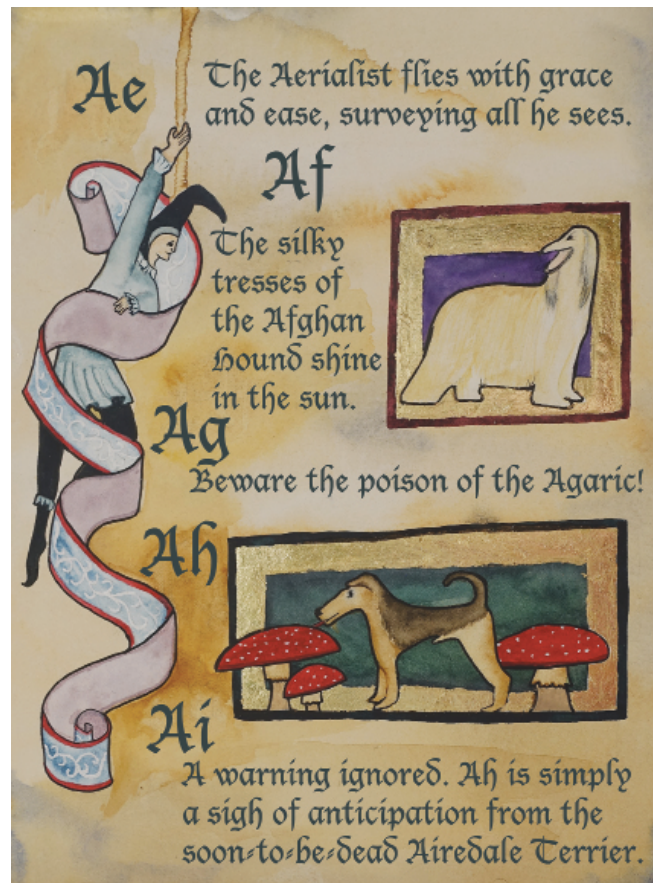 Ae
The Aerialist flies with grace
and ease, surveying all he sees.
Af
The silky
tresses of
the Afghan
Hound shine
in the sun.
Ag
Beware the poison of the Agaric!
Ah
Ai
A warning ignored. Ah is simply
a sigh of anticipation from the
soon-to-be-dead Airedale Terrier.